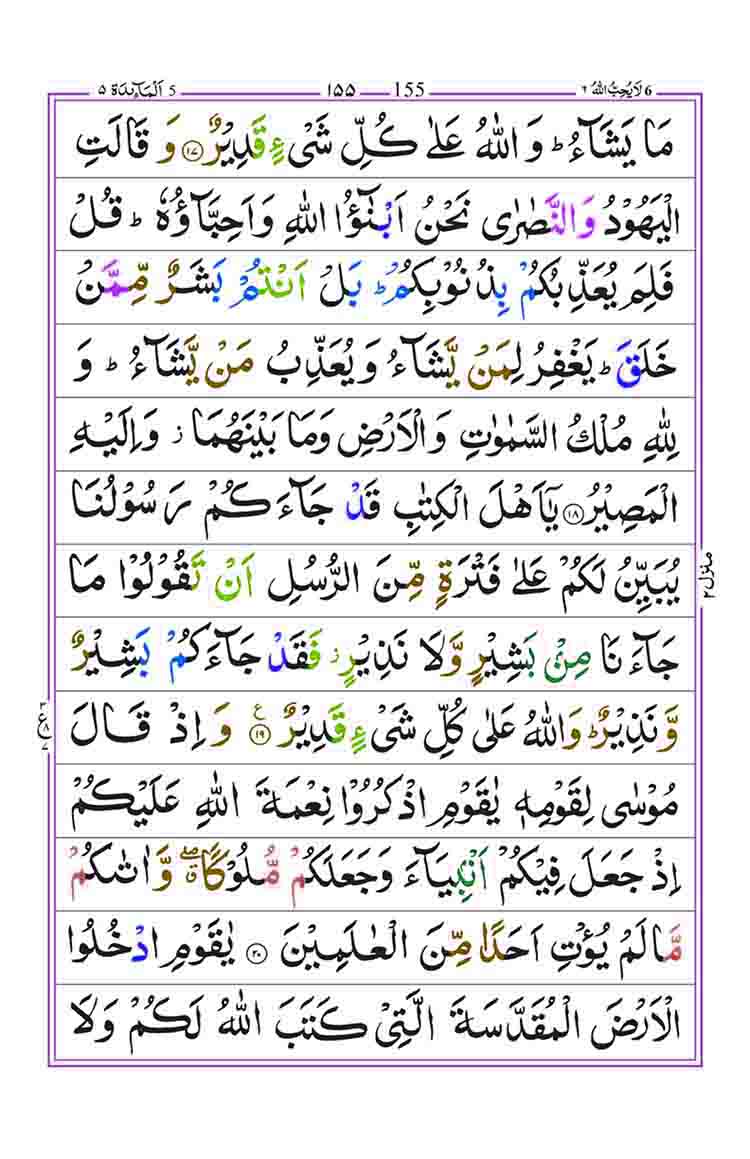 6 لَا یُحِبُّ اللهُ ٦ 155 ۱۵۵ 5 اَلْمَآئِدَة ۵
مَا یَشَآءُ ؕ وَ اللهُ عَلٰی كُلِّ شَیْءٍ قَدِیْرٌ ﴿۱۷﴾ وَ قَالَتِ
الْیَهُوْدُ وَالنَّصٰرٰی نَحْنُ اَبْنٰٓؤُا اللهِ وَاَحِبَّآؤُهٗ ؕ قُلْ
فَلِمَ یُعَذِّبُكُمْ بِذُنُوْبِكُمْ ؕ بَلْ اَنْتُمْ بَشَرٌ مِّمَّنْ
خَلَقَ ؕ یَغْفِرُ لِمَنْ یَّشَآءُ وَیُعَذِّبُ مَنْ یَّشَآءُ ؕ وَ
لِلّٰهِ مُلْكُ السَّمٰوٰتِ وَالْاَرْضِ وَمَا بَیْنَهُمَا ؗ وَاِلَیْهِ
الْمَصِیْرُ ﴿۱۸﴾ یٰۤاَهْلَ الْكِتٰبِ قَدْ جَآءَكُمْ رَسُوْلُنَا
یُبَیِّنُ لَكُمْ عَلٰی فَتْرَةٍ مِّنَ الرُّسُلِ اَنْ تَقُوْلُوْا مَا
جَآءَنَا مِنْۢ بَشِیْرٍ وَّلَا نَذِیْرٍ ؗ فَقَدْ جَآءَكُمْ بَشِیْرٌ
وَّنَذِیْرٌ ؕ وَاللهُ عَلٰی كُلِّ شَیْءٍ قَدِیْرٌ ﴿۱۹﴾ ع وَاِذْ قَالَ
مُوْسٰی لِقَوْمِهٖ یٰقَوْمِ اذْكُرُوْا نِعْمَةَ اللهِ عَلَیْكُمْ
اِذْ جَعَلَ فِیْكُمْ اَنْۢبِیَآءَ وَجَعَلَكُمْ مُّلُوْكًا ۖۗ وَّاٰتٰىكُمْ
مَّا لَمْ یُؤْتِ اَحَدًا مِّنَ الْعٰلَمِیْنَ ﴿۲۰﴾ یٰقَوْمِ ادْخُلُوا
الْاَرْضَ الْمُقَدَّسَةَ الَّتِیْ كَتَبَ اللهُ لَكُمْ وَلَا
منزل ۲